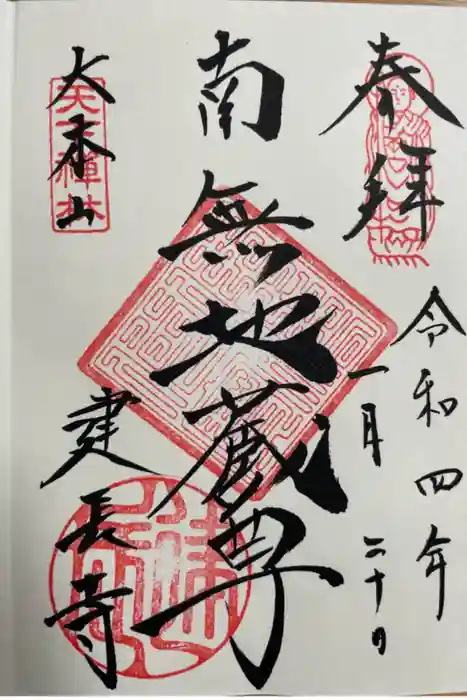 奉拝
令和四年
一月二十日
南無地蔵尊
大本山
天下禅林
建長寺